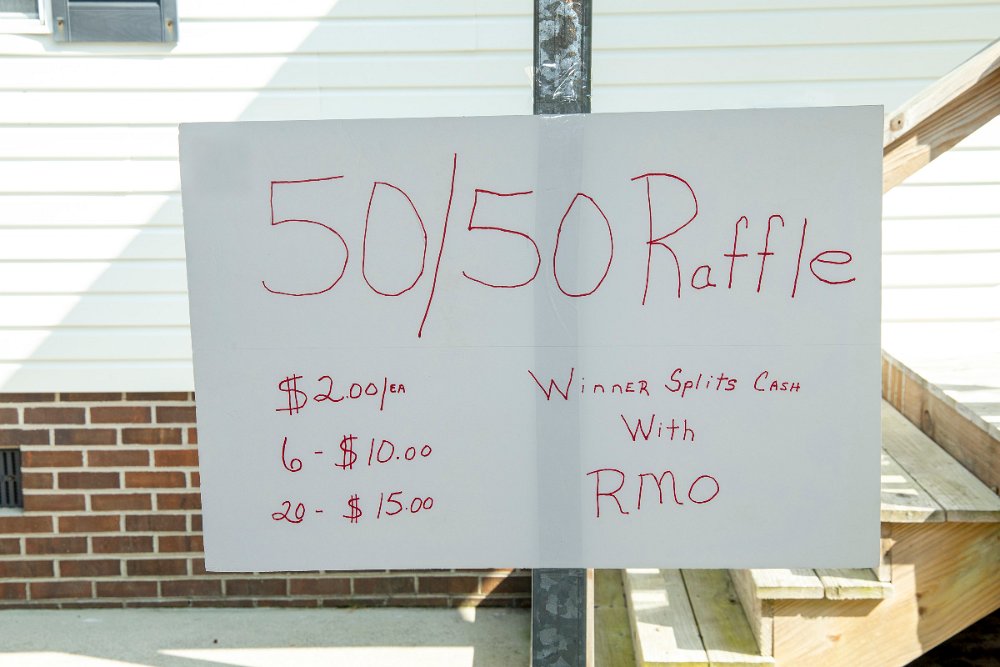 50/50 Raffle
$2.00/EA
6 - $10.00
20 - $15.00
Winner Splits Cash
With
RMO